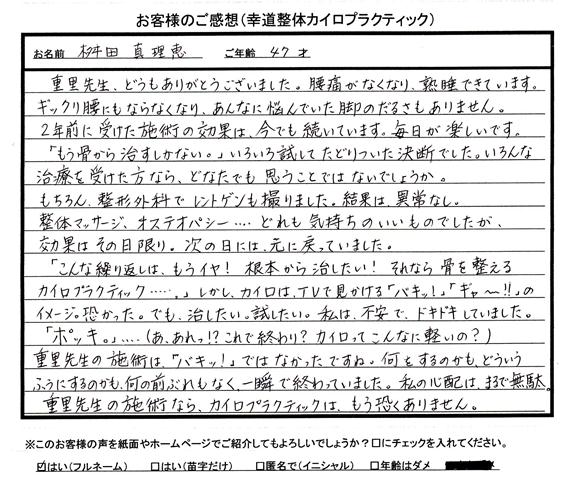 お客様のご感想(幸道整体カイロプラクティック)
お名前 桝田 真理恵 ご年齢 47 才
重里先生、どうもありがとうございました。腰痛がなくなり、熟睡できています。
ギックリ腰にもならなくなり、あんなに悩んでいた脚のだるさもありません。
2年前に受けた施術の効果は、今でも続いています。毎日が楽しいです。
「もう骨から治すしかない。」いろいろ試してたどりついた決断でした。いろんな
治療を受けた方なら、どなたでも思うことではないでしょうか。
もちろん、整形外科でレントゲンも撮りました。結果は、異常なし。
整体マッサージ、オステオパシー‥‥どれも気持ちのいいものでしたが、
効果はその日限り。次の日には、元に戻っていました。
「こんな繰り返しは、もうイヤ! 根本から治したい! それなら骨を整える
カイロプラクティック‥‥‥。」しかし、カイロは、TVで見かける「バキッ!」「ギャ〜!!」の
イメージ。恐かった。でも、治したい。試したい。私は、不安で、ドキドキしていました。
「ポッキ。」‥‥(あ、あれっ!? これで終わり? カイロってこんなに軽いの?)
重里先生の施術は、「バキッ!」ではなかったですね。何をするのかも、どういう
ふうにするのかも、何の前ぶれもなく、一瞬で終わっていました。私の心配は、まるで無駄。
重里先生の施術なら、カイロプラクティックは、もう恐くありません。
※このお客様の声を紙面やホームページでご紹介してもよろしいでしょうか?□にチェックを入れてください。
☑はい(フルネーム) □はい(苗字だけ) □匿名で(イニシャル) □年齢はダメ